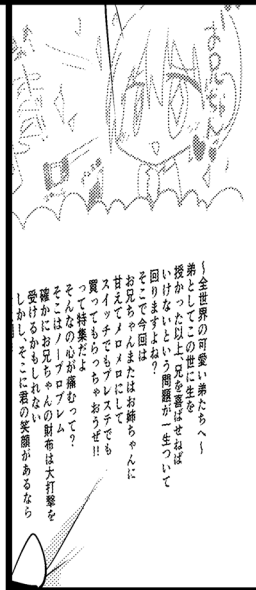 お兄ちゃん
～全世界の可愛い弟たちへ～
弟としてこの世に生を
授かった以上、兄を喜ばせねば
いけないという問題が一生ついて
回りますよね？
そこで今回は
お兄ちゃんまたはお姉ちゃんに
甘えてメロメロにして
スイッチでもプレステでも
買ってもらっちゃおうぜ!!
って特集だよ
そんなの心が痛むって？
そこはノープロブレム
確かにお兄ちゃんの財布は大打撃を
受けるかもしれない
しかし、そこに君の笑顔があるなら